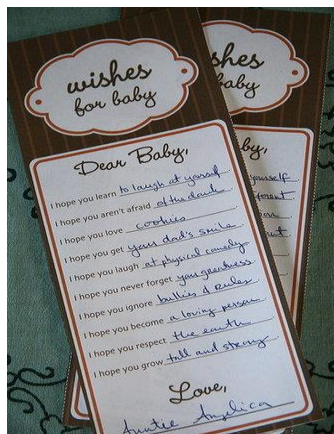 wishes
for baby
Dear Baby,
I hope you learn to laugh at yourself.
I hope you aren't afraid of the dark.
I hope you love cookies.
I hope you get your dad's smile.
I hope you laugh at physical comedy.
I hope you never forget your greatness.
I hope you ignore bullies & rules.
I hope you become a loving person.
I hope you respect the earth.
I hope you grow tall and strong.
Love,
Auntie Angelica
shes
baby
by,
yourself